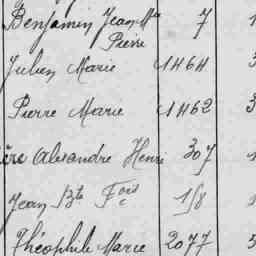 Benjamin Jean Mie 7 1
Pierre
Julien Marie 1464 3
Pierre Marie 1462 3
ère Alexandre Henri 307 1
Jean Bte Fois 158 1
Théophile Marie 2077 5